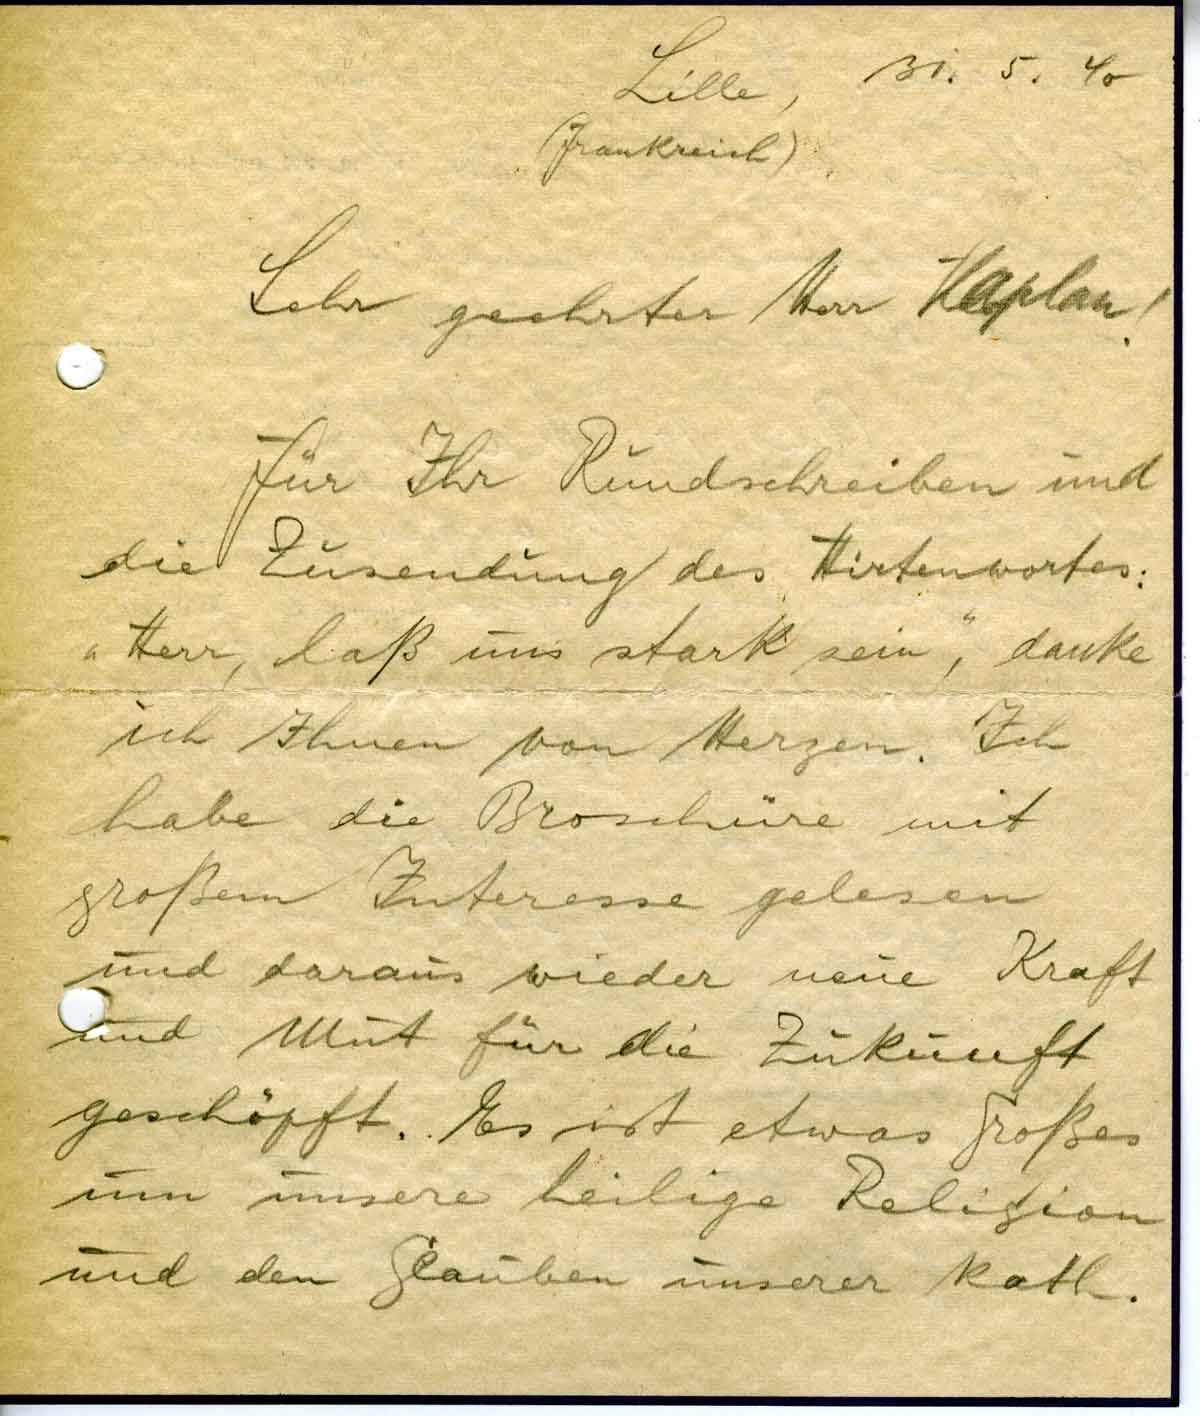 Lille, 31. 5. 40
(Frankreich)
Sehr geehrter Herr Kaplan!
Für Ihr Rundschreiben und
die Zusendung des Hirtenwortes:
"Herr, laß uns stark sein", danke
ich Ihnen von Herzen. Ich
habe die Broschüre mit
großem Interesse gelesen
und daraus wieder neue Kraft
und Mut für die Zukunft
geschöpft. Es ist etwas Großes
um unsere heilige Religion
und den Glauben unserer kath.